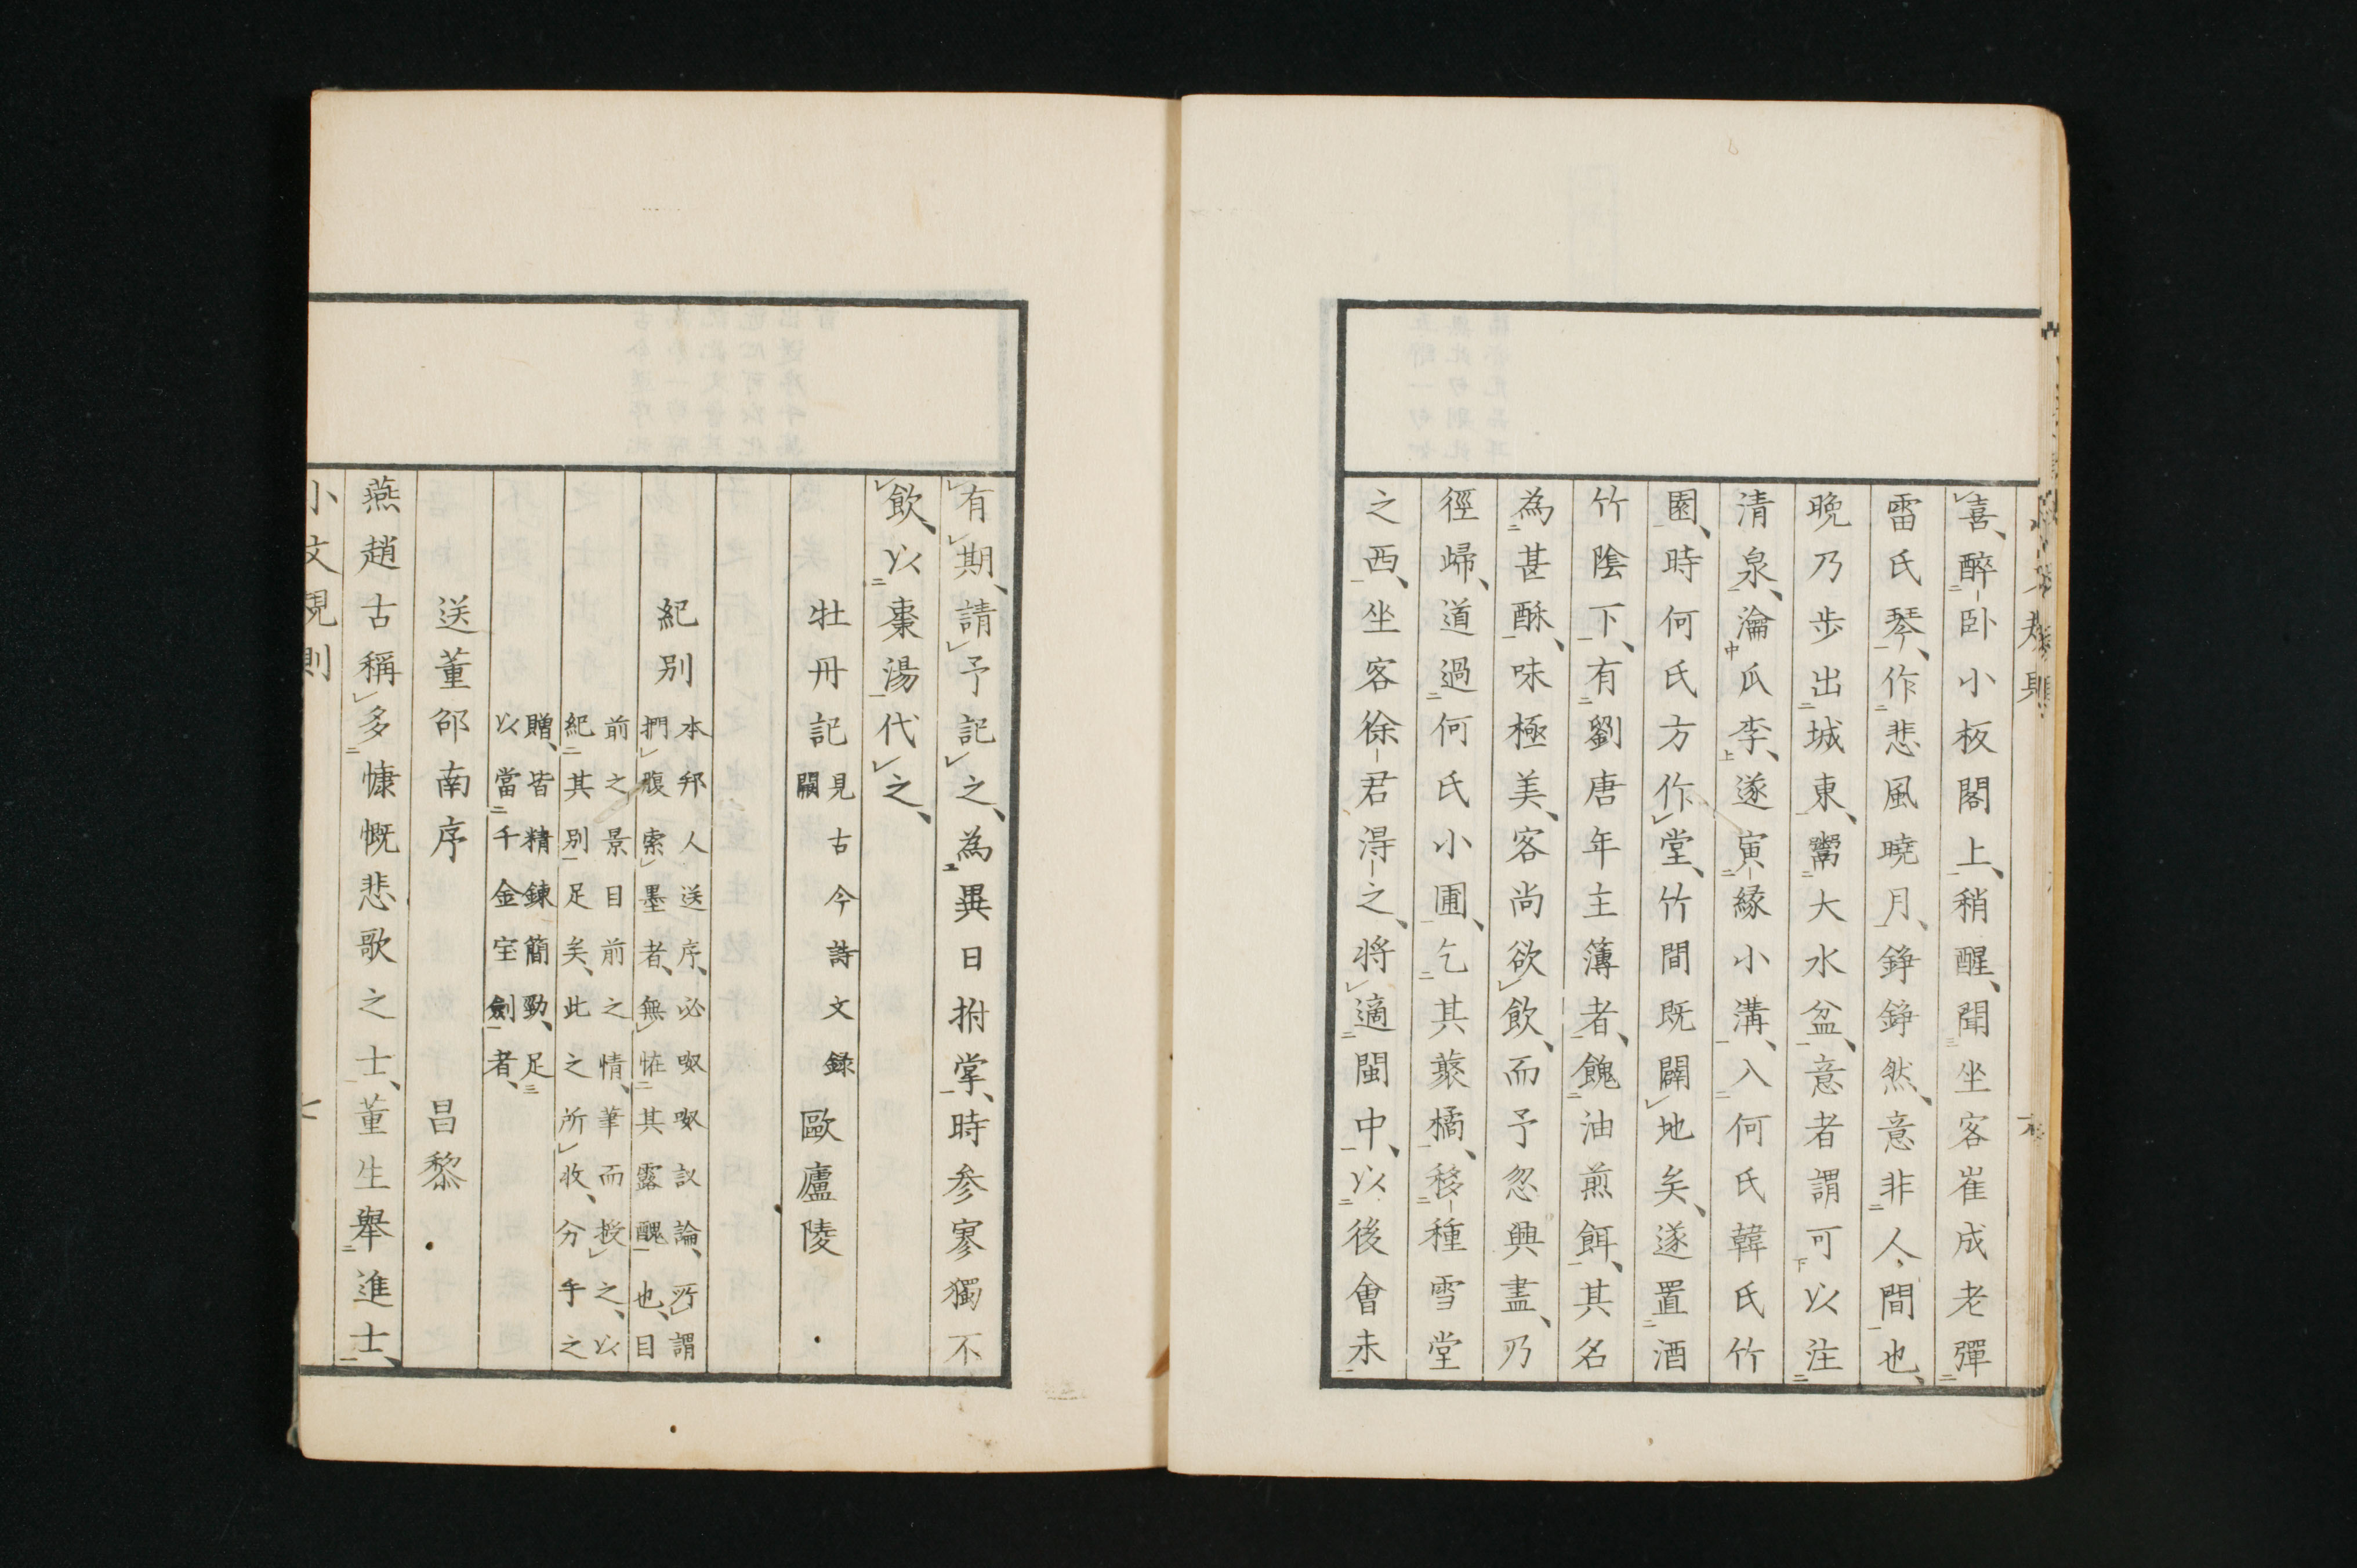 喜、醉臥小板閣上、稍醒、聞坐客崔成老彈
雷氏琴、作悲風曉月、錚錚然、意非人間也、
晚乃步出城東、鬻大水盆、意者謂可以注
清泉、瀹瓜李、遂夤緣小溝、入何氏韓氏竹
園、時何氏方作堂、竹間既闢地矣、遂置酒
竹陰下、有劉唐年主簿者、餽油煎餌、其名
為甚酥、味極美、客尚欲飲、而予忽興盡、乃
徑歸、道過何氏小圃、乞其藂橘、移種雪堂
之西、坐客徐君得之、將適閩中、以後會未
有期、請予記之、為異日拊掌、時参寥獨不
飲、以棗湯代之、
牡丹記 見古今詩文錄 歐廬陵
闕
紀別 本邦人送序、必呶呶議論、所謂
捫腹索墨者、無恠其露醜也、目
前之景目前之情、筆而授之、以
紀其別足矣、此之所收、分手之
贈、皆精鍊簡勁、足
以當千金宝劍者、
送董邵南序 昌黎
燕趙古稱多慷慨悲歌之士、董生舉進士、
小文規則 七